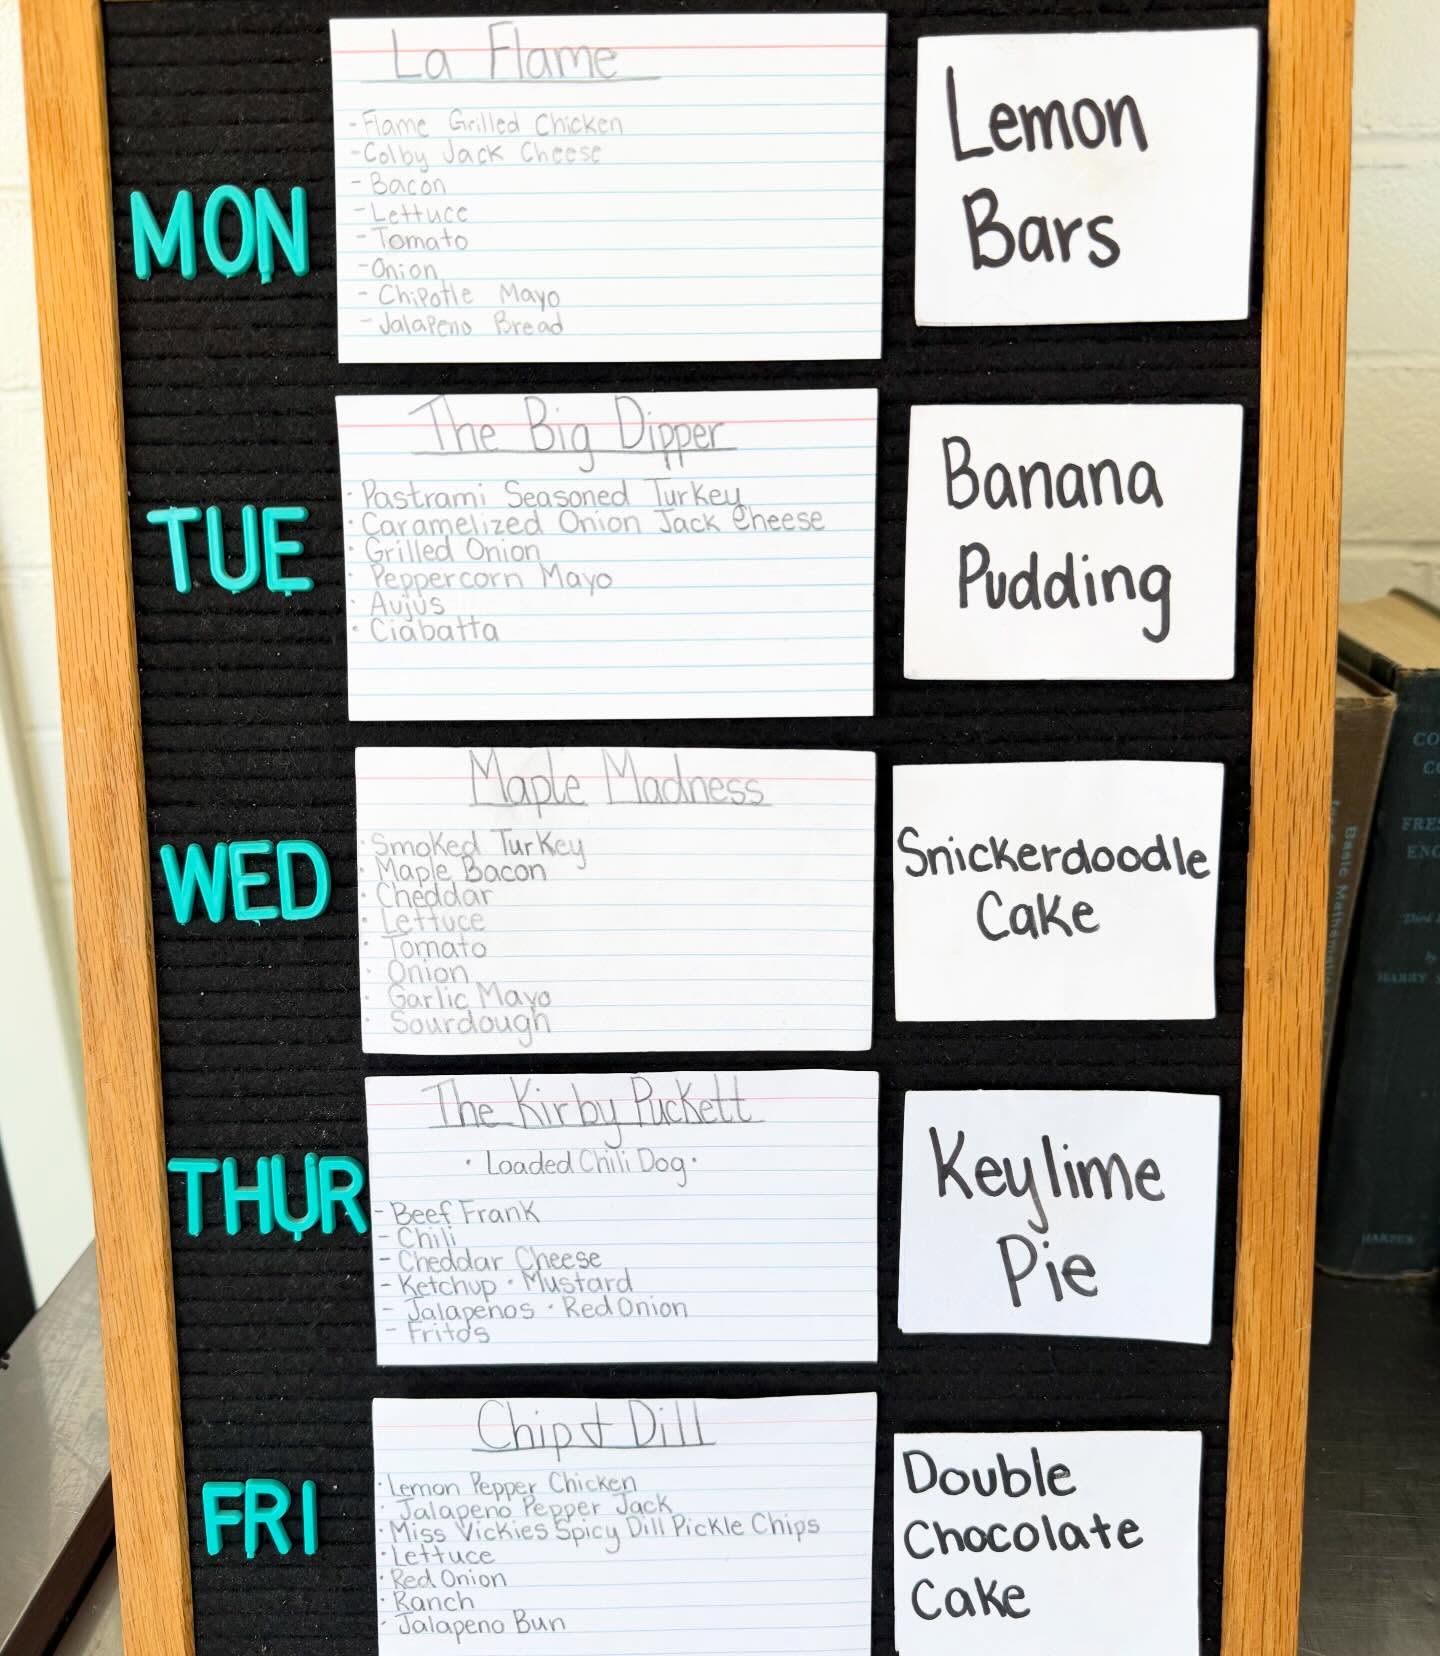 MON
La Flame
- Flame Grilled Chicken
- Colby Jack Cheese
- Bacon
- Lettuce
- Tomato
- Onion
- Chipotle Mayo
- Jalapeno Bread
Lemon
Bars
TUE
The Big Dipper
· Pastrami Seasoned Turkey
· Caramelized Onion Jack Cheese
· Grilled Onion
· Peppercorn Mayo
· Aujus
· Ciabatta
Banana
Pudding
WED
Maple Madness
· Smoked Turkey
· Maple Bacon
· Cheddar
· Lettuce
· Tomato
· Onion
· Garlic Mayo
· Sourdough
Snickerdoodle
Cake
THUR
The Kirby Puckett
· Loaded Chili Dog ·
- Beef Frank
- Chili
- Cheddar Cheese
- Ketchup · Mustard
- Jalapenos · Red Onion
- Frito's
Keylime
Pie
FRI
Chip & Dill
· Lemon Pepper Chicken
· Jalapeno Pepper Jack
· Miss Vickies Spicy Dill Pickle Chips
· Lettuce
· Red Onion
· Ranch
· Jalapeno Bun
Double
Chocolate
Cake
Basic Mathematics
HARPER